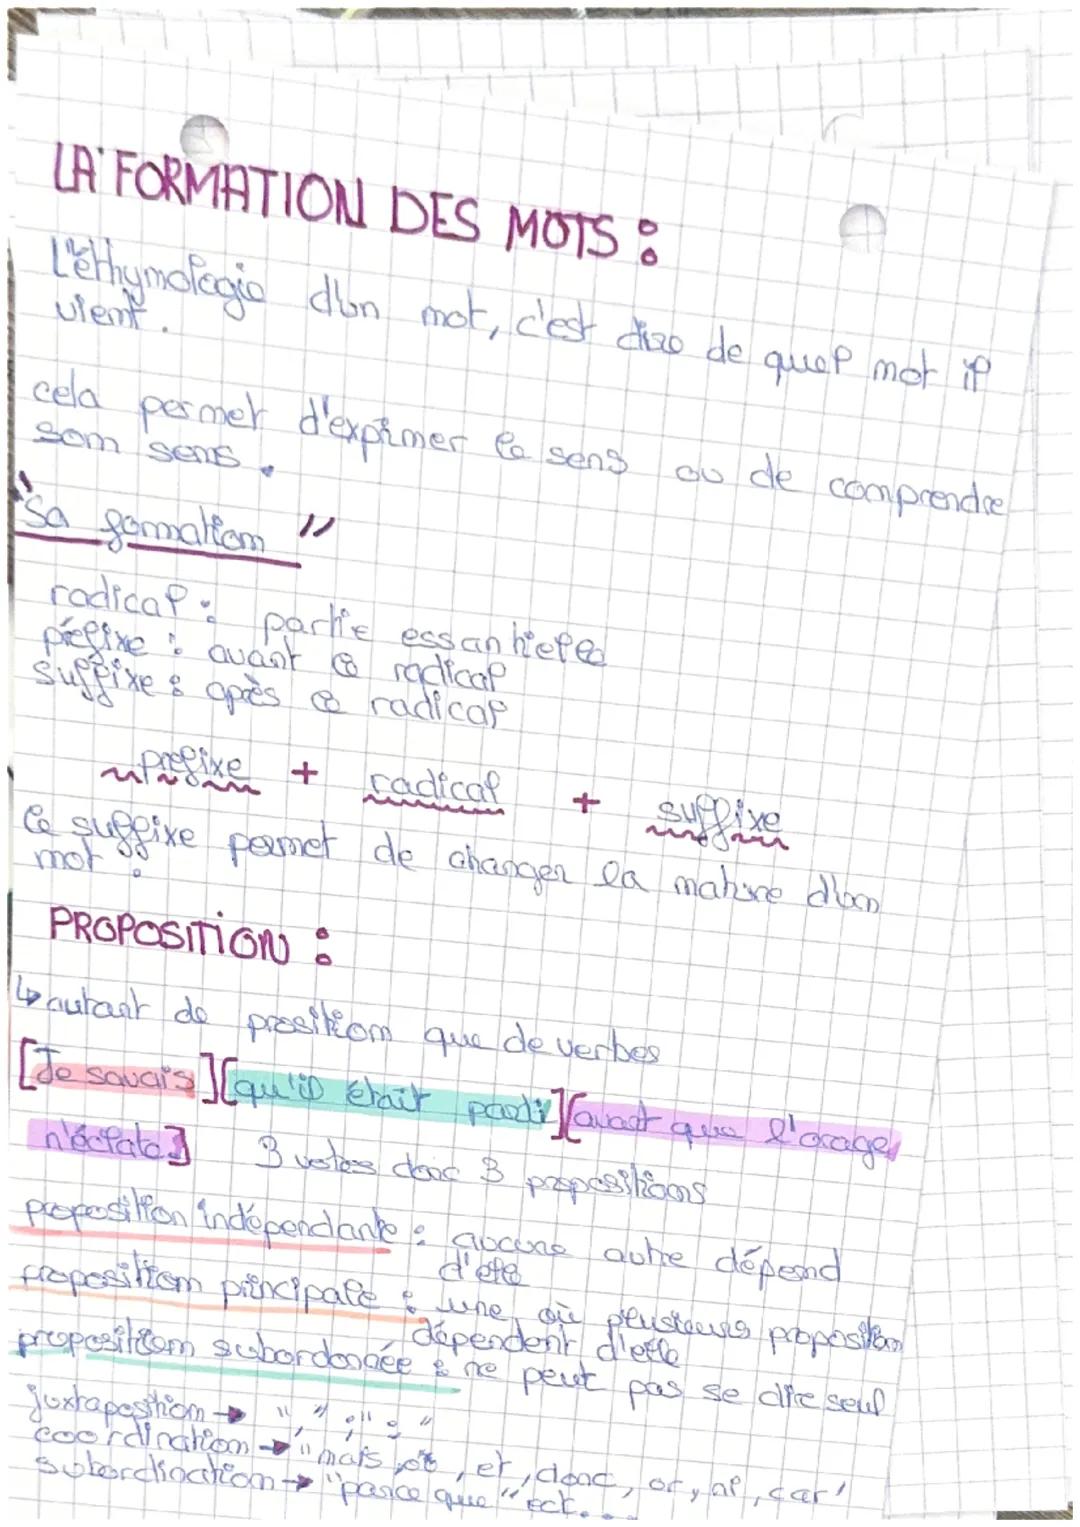 LA FORMATION DES MOTS :
L'éthymologie d'un mot, c'est dire de quel mot il
vient.
cela permet d'exprimer le sens ou de comprendre
som sens.
"sa formation"
radical : partie essantielle
préfixe : avant le radical
suffixe : après le radical
prefixe + radical + suffixe
le suffixe permet de changer la nature d'un
mot.
PROPOSITION :
↳ autant de prosition que de verbes
[Je savais][qu'il était parti][avant que l'orage
n'éclate] 3 verbes donc 3 propositions
proposition indépendante : aucune autre dépend
d'elle
proposition principale : une où plusieurs proposition
dépendent d'elle
proposition subordonnée : ne peut pas se dire seul
juxtaposition → "," ";" ":"
coordination → "mais, ou, et, donc, or, ni, car"
subordination → "parce que" ect...